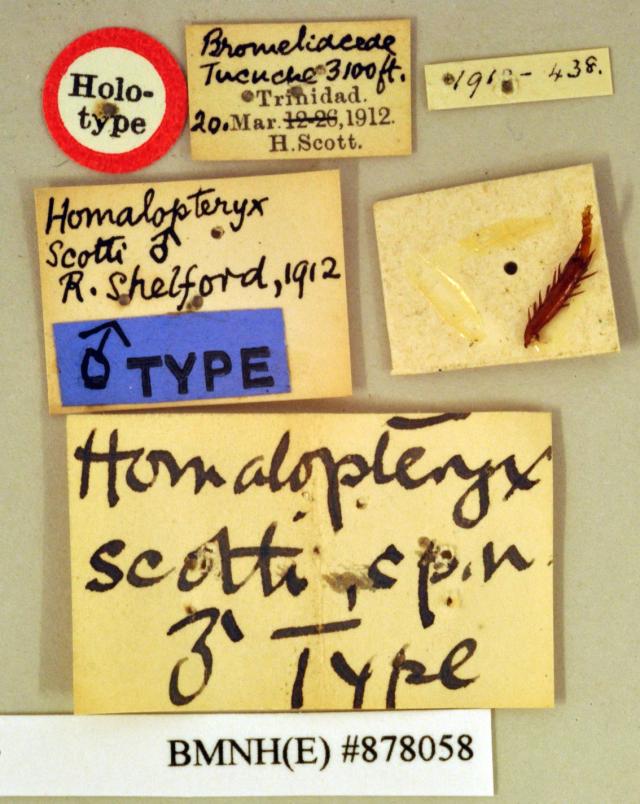 Holo-
type
Bromeliaceae
Tucuche 3100ft.
Trinidad.
20. Mar. 12-26, 1912.
H. Scott.
1912 - 438.
Homalopteryx
Scotti ♂
R. Shelford, 1912
♂ TYPE
Homalopteryx
scotti, sp. n.
♂ Type
BMNH(E) #878058